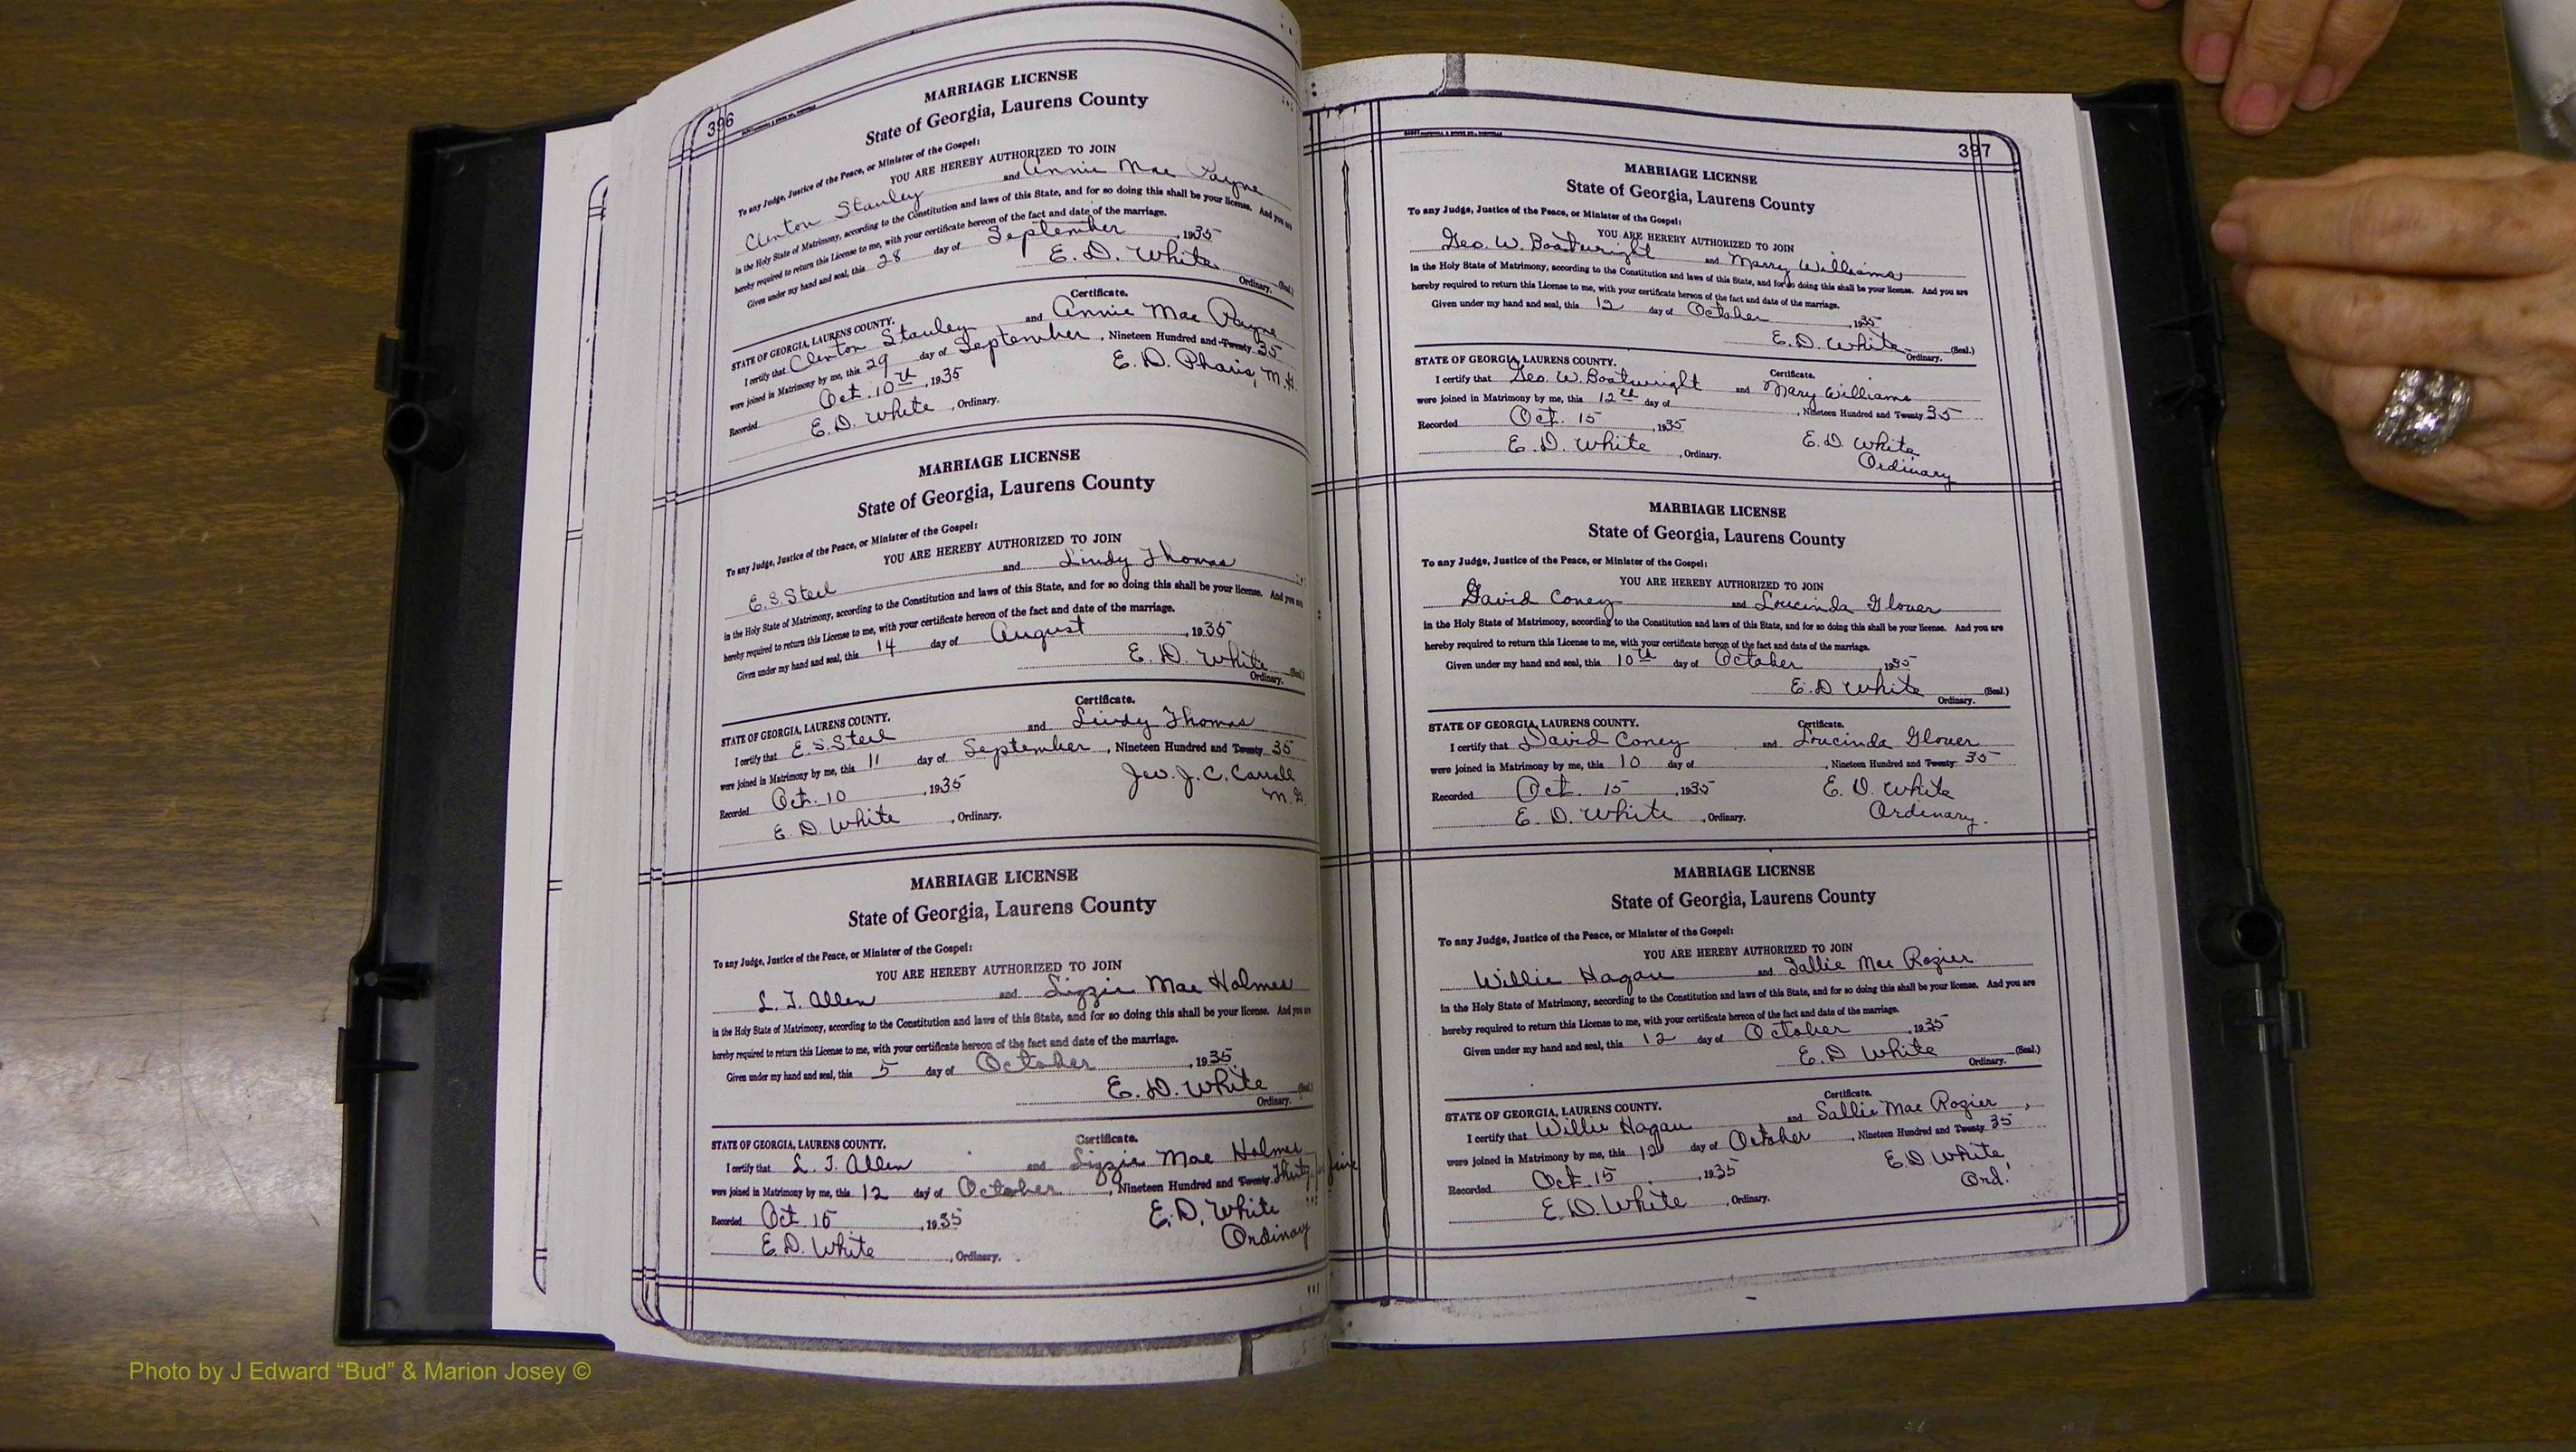 396
MARRIAGE LICENSE
State of Georgia, Laurens County
To any Judge, Justice of the Peace, or Minister of the Gospel:
YOU ARE HEREBY AUTHORIZED TO JOIN
Clinton Stanley and Annie Mae Payne
in the Holy State of Matrimony, according to the Constitution and laws of this State, and for so doing this shall be your license. And you are
hereby required to return this License to me, with your certificate hereon of the fact and date of the marriage.
Given under my hand and seal, this 28 day of September, 1935
E. D. White
Ordinary. (Seal.)
Certificate.
STATE OF GEORGIA, LAURENS COUNTY.
I certify that Clinton Stanley and Annie Mae Payne
were joined in Matrimony by me, this 29 day of September, Nineteen Hundred and Twenty 35
Recorded Oct. 10th, 1935 E. D. Pharis, M.G.
E. D. White, Ordinary.
MARRIAGE LICENSE
State of Georgia, Laurens County
To any Judge, Justice of the Peace, or Minister of the Gospel:
YOU ARE HEREBY AUTHORIZED TO JOIN
E. S. Steel and Lindy Thomas
in the Holy State of Matrimony, according to the Constitution and laws of this State, and for so doing this shall be your license. And you are
hereby required to return this License to me, with your certificate hereon of the fact and date of the marriage.
Given under my hand and seal, this 14 day of August, 1935
E. D. White
Ordinary. (Seal.)
Certificate.
STATE OF GEORGIA, LAURENS COUNTY.
I certify that E. S. Steel and Lindy Thomas
were joined in Matrimony by me, this 11 day of September, Nineteen Hundred and Twenty 35
Recorded Oct. 10, 1935 J. C. Carroll
M.G.
E. D. White, Ordinary.
MARRIAGE LICENSE
State of Georgia, Laurens County
To any Judge, Justice of the Peace, or Minister of the Gospel:
YOU ARE HEREBY AUTHORIZED TO JOIN
L. T. Allen and Lizzie Mae Holmes
in the Holy State of Matrimony, according to the Constitution and laws of this State, and for so doing this shall be your license. And you are
hereby required to return this License to me, with your certificate hereon of the fact and date of the marriage.
Given under my hand and seal, this 5 day of October, 1935
E. D. White (Seal.)
Ordinary.
Certificate.
STATE OF GEORGIA, LAURENS COUNTY.
I certify that L. T. Allen and Lizzie Mae Holmes
were joined in Matrimony by me, this 12 day of October, Nineteen Hundred and Twenty Thirty five
Recorded Oct. 15, 1935 E. D. White
E. D. White, Ordinary. Ordinary
397
MARRIAGE LICENSE
State of Georgia, Laurens County
To any Judge, Justice of the Peace, or Minister of the Gospel:
YOU ARE HEREBY AUTHORIZED TO JOIN
Geo. W. Boatwright and Marry Williams
in the Holy State of Matrimony, according to the Constitution and laws of this State, and for so doing this shall be your license. And you are
hereby required to return this License to me, with your certificate hereon of the fact and date of the marriage.
Given under my hand and seal, this 12 day of October, 1935
E. D. White (Seal.)
Ordinary.
Certificate.
STATE OF GEORGIA, LAURENS COUNTY.
I certify that Geo. W. Boatwright and Mary Williams
were joined in Matrimony by me, this 12th day of, Nineteen Hundred and Twenty 35
Recorded Oct. 15, 1935 E. D. White
E. D. White, Ordinary. Ordinary
MARRIAGE LICENSE
State of Georgia, Laurens County
To any Judge, Justice of the Peace, or Minister of the Gospel:
YOU ARE HEREBY AUTHORIZED TO JOIN
David Coney and Loucinda Glover
in the Holy State of Matrimony, according to the Constitution and laws of this State, and for so doing this shall be your license. And you are
hereby required to return this License to me, with your certificate hereon of the fact and date of the marriage.
Given under my hand and seal, this 10th day of October, 1935
E. D. White (Seal.)
Ordinary.
Certificate.
STATE OF GEORGIA, LAURENS COUNTY.
I certify that David Coney and Loucinda Glover
were joined in Matrimony by me, this 10 day of, Nineteen Hundred and Twenty 35
Recorded Oct. 15, 1935 E. D. White
E. D. White, Ordinary. Ordinary.
MARRIAGE LICENSE
State of Georgia, Laurens County
To any Judge, Justice of the Peace, or Minister of the Gospel:
YOU ARE HEREBY AUTHORIZED TO JOIN
Willie Hagan and Sallie Mae Rozier
in the Holy State of Matrimony, according to the Constitution and laws of this State, and for so doing this shall be your license. And you are
hereby required to return this License to me, with your certificate hereon of the fact and date of the marriage.
Given under my hand and seal, this 12 day of October, 1935
E. D. White (Seal.)
Ordinary.
Certificate.
STATE OF GEORGIA, LAURENS COUNTY.
I certify that Willie Hagan and Sallie Mae Rozier
were joined in Matrimony by me, this 12 day of October, Nineteen Hundred and Twenty 35
Recorded Oct. 15, 1935 E. D. White
E. D. White, Ordinary. Ord.
Photo by J Edward “Bud” & Marion Josey ©